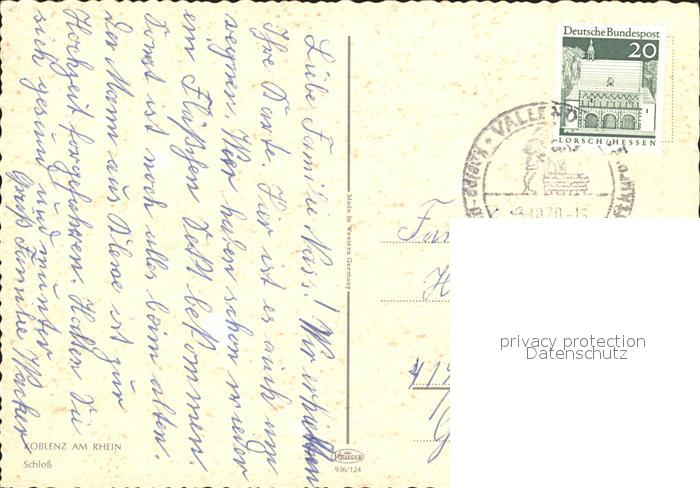 Liebe Familie Nass! Wir erhielten
Ihre Karte. Hier ist es auch am
regnen. Wir haben schon wieder
ein Fläschen Sekt bekommen.
Sonst ist noch alles beim alten.
Der Mann aus Kleve ist zur
Hochzeit fortgefahren. Halten Sie
sich gesund und munter
Gruß Familie Wacker
KOBLENZ AM RHEIN
Schloß
Made in Western Germany
KRÜGER
936/124
Deutsche Bundespost
20
LORSCH/HESSEN
VALLENDAR
privacy protection
Datenschutz